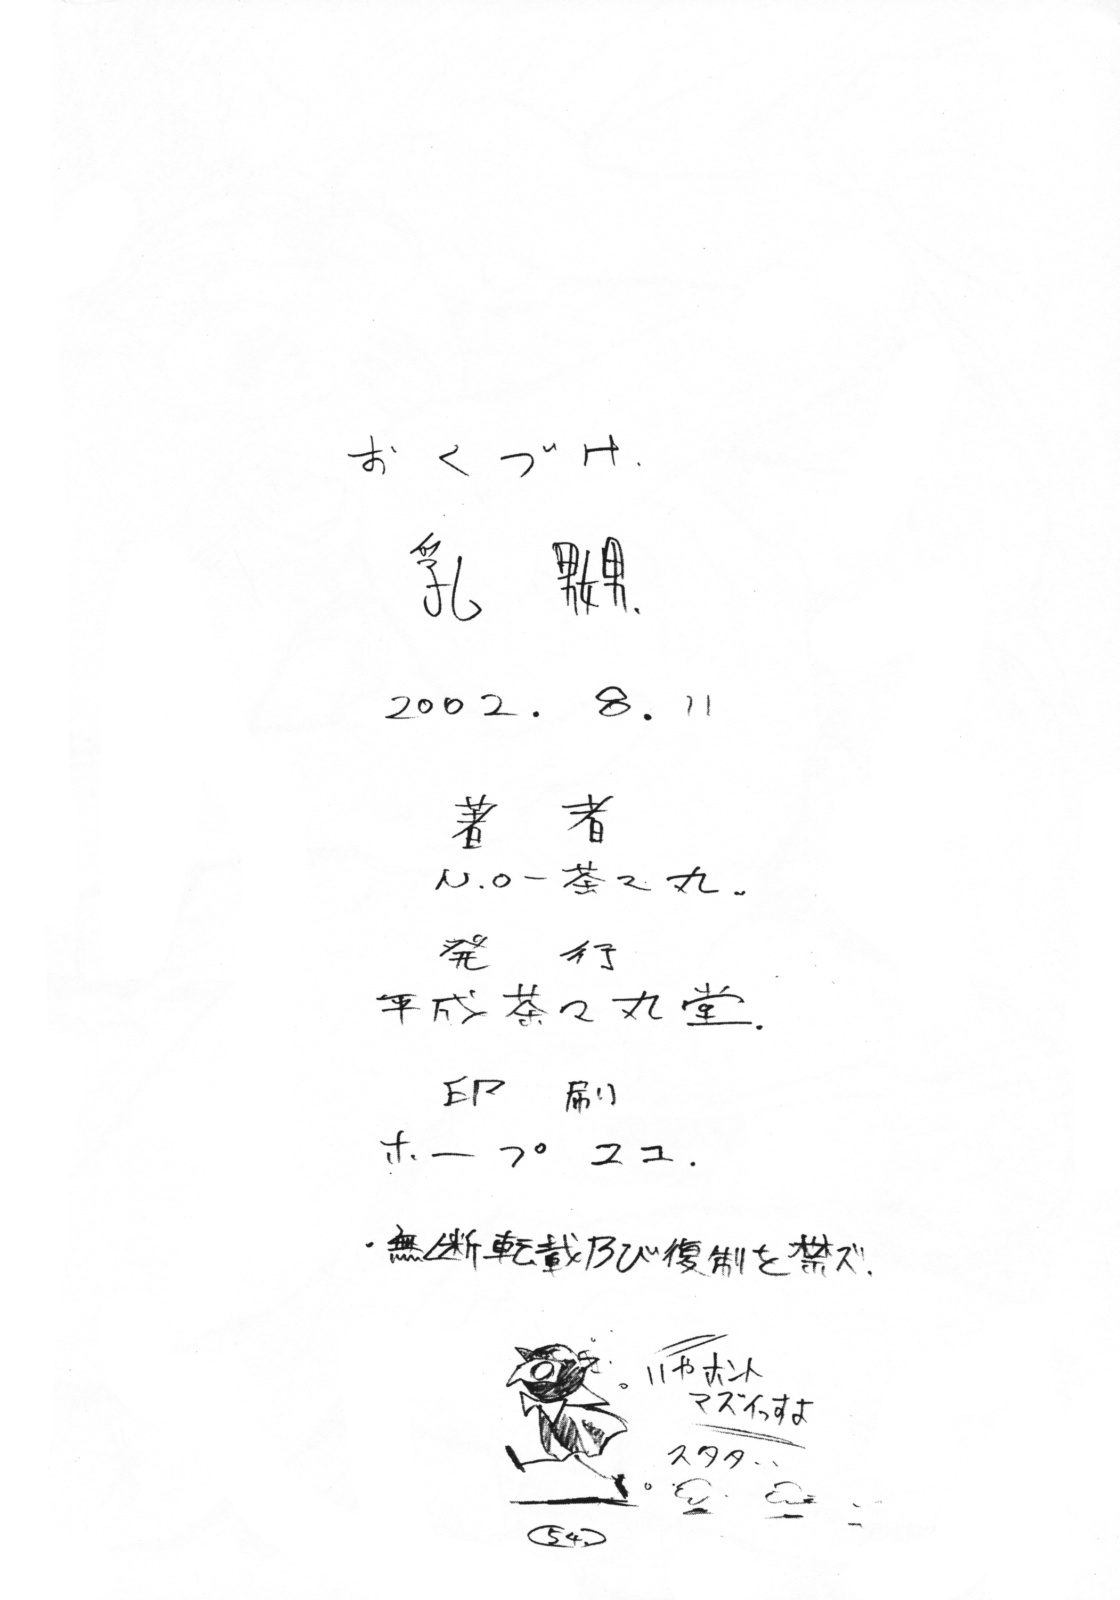 おくづけ.
乳 嬲.
2002. 8. 11
著 者
N.O-茶々丸.
発 行
平成茶々丸堂.
印 刷
ホープ21.
・無断転載及び復制を禁ズ.
いやホント
マズイっすよ
スタタ..
54.